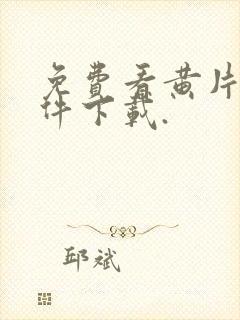 免费看黄片
件下载.
邱斌